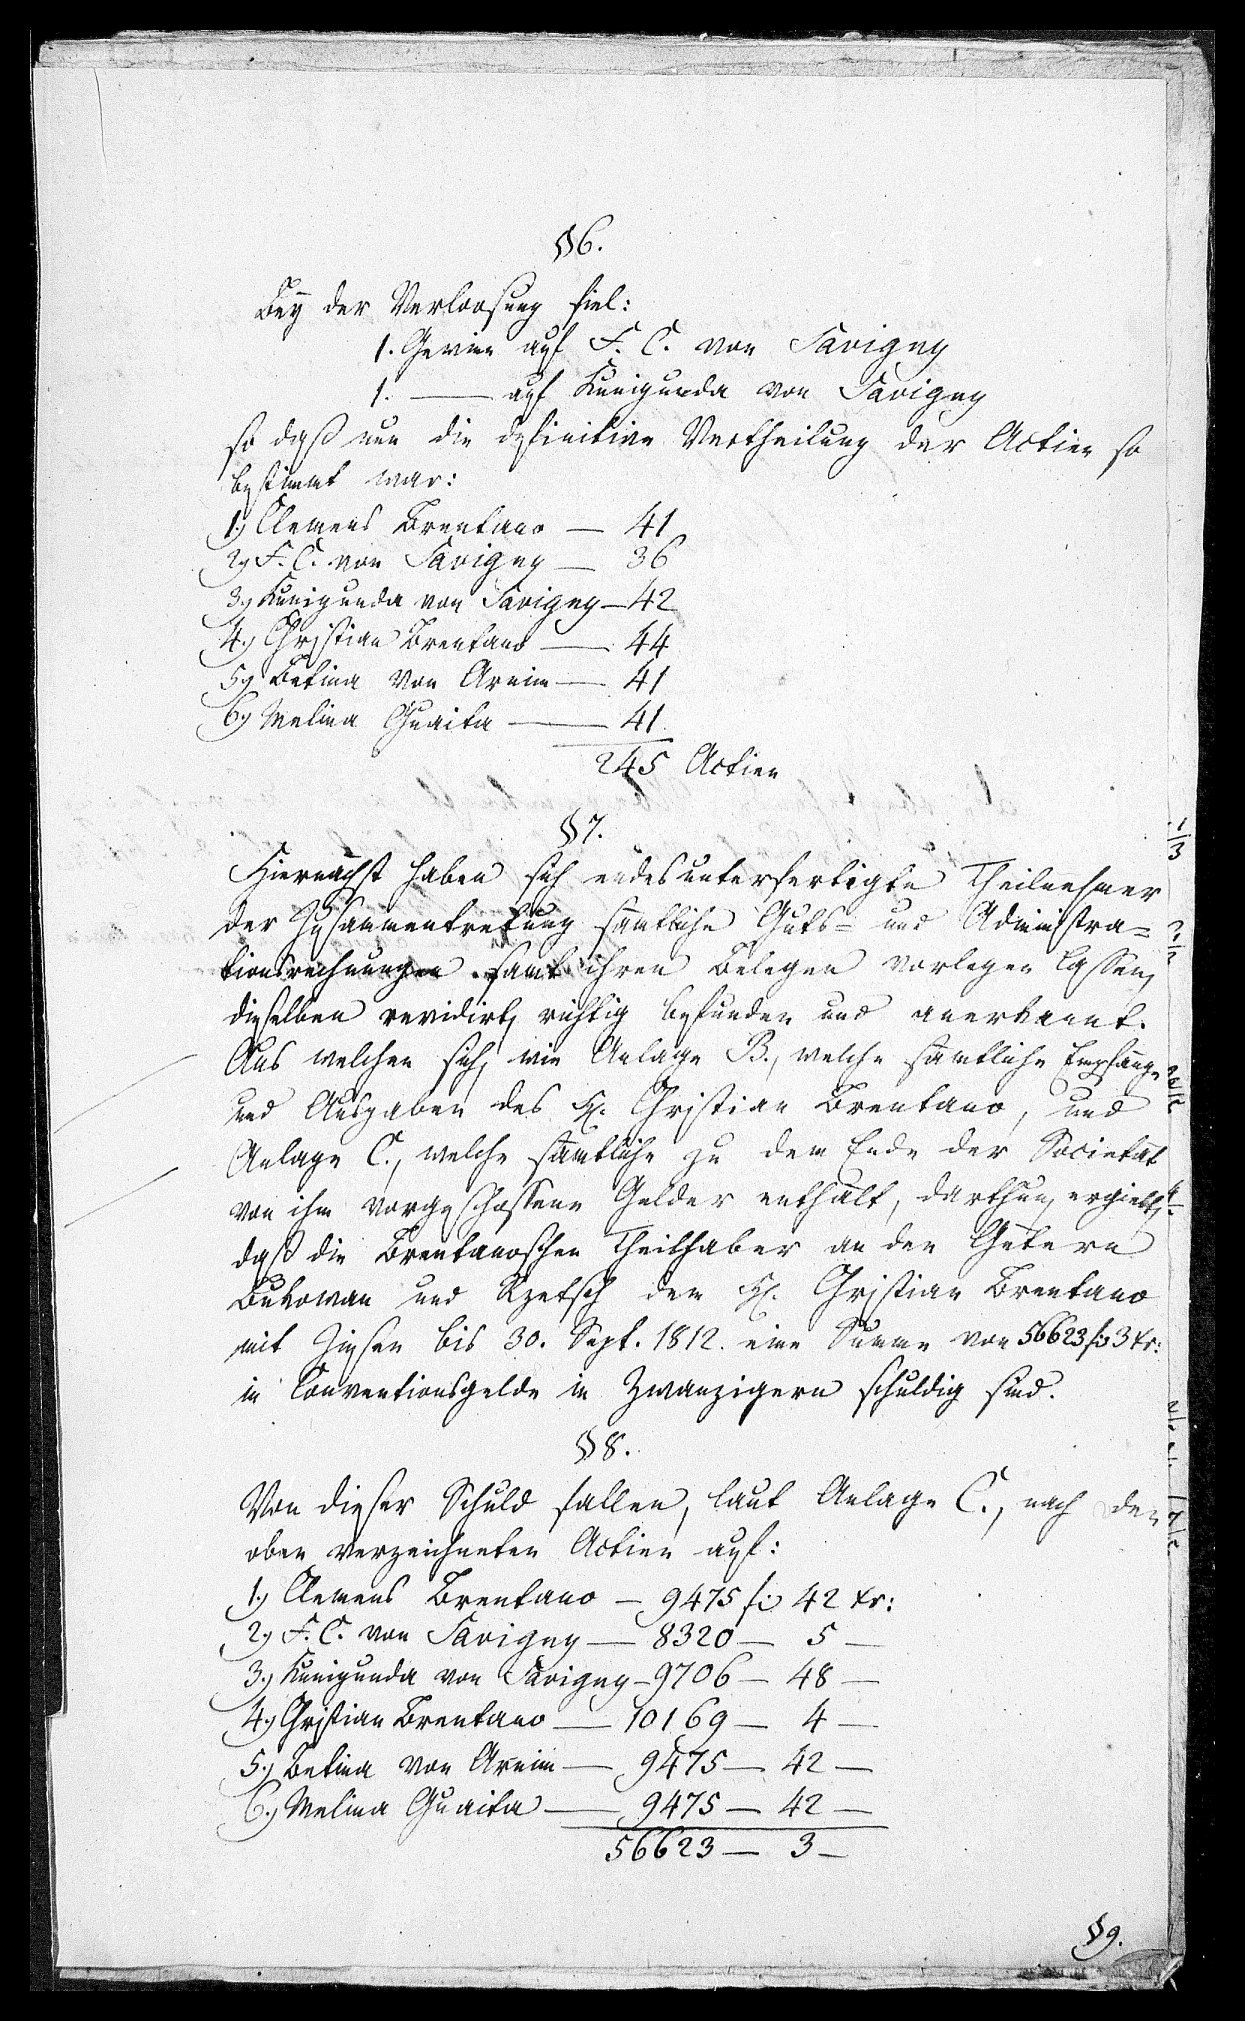 § 6.
Bey der Verloosung fiel:
1. Gewinn auf F. C. von Savigny
1. —— auf Kunigunda von Savigny
so daß nun die definitive Vertheilung der Actien so
bestimmt war:
1.) Clemens Brentano — 41
2.) F. C. von Savigny — 36
3.) Kunigunda von Savigny — 42
4.) Christian Brentano — 44
5.) Betina von Arnim — 41
6.) Melina Guaita — 41
245 Actien
§ 7.
Hiernächst haben sich endesunterfertigte Theilnehmer
der Zusammentretung sämtliche Guts- und Administra=
tionsrechnungen samt ihren Belegen vorlegen lassen,
dieselben revidirt, richtig befunden und anerkannt.
Aus welchen sich, wie Anlage B., welche sämtliche Empfänge
und Ausgaben des H. Christian Brentano, und
Anlage C., welche sämtliche zu dem Ende der Societät
von ihm vorgeschossene Gelder enthält, darthun, ergiebt,
daß die Brentanoschen Theilhaber an den Gütern
Bukowan und Rzetsch dem H. Christian Brentano
mit Zinsen bis 30. Sept. 1812. eine Summe von 56623 f. 3 Xr:
in Conventionsgelde in Zwanzigern schuldig sind.
§ 8.
Von dieser Schuld fallen, laut Anlage C., nach den
oben verzeichneten Actien auf:
1.) Clemens Brentano — 9475 f. 42 Xr:
2.) F. C. von Savigny — 8320 — 5 —
3.) Kunigunda von Savigny — 9706 — 48 —
4.) Christian Brentano — 10169 — 4 —
5.) Betina von Arnim — 9475 — 42 —
6.) Melina Guaita — 9475 — 42 —
56623 — 3 —
§ 9.